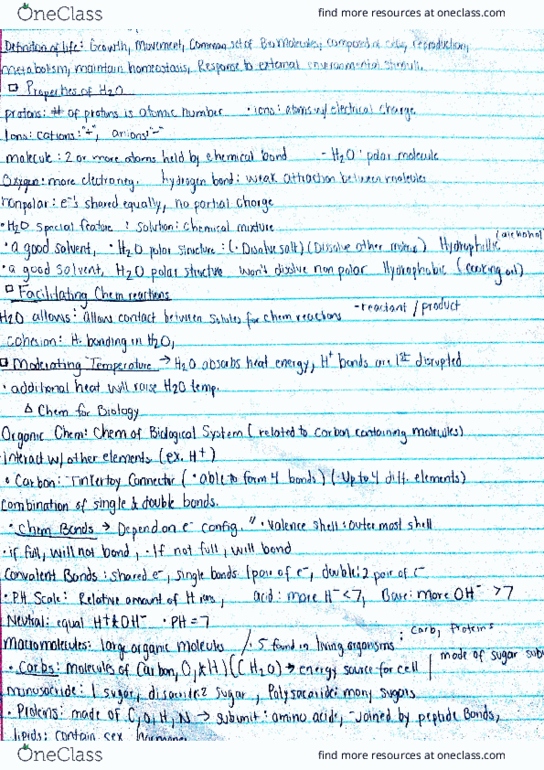 OneClass
find more resources at oneclass.com
Definition of life: Growth, Movement, Common set of Biomolecules, composed of cells, reproduction,
metabolism, maintain homeostasis, Response to external environmental stimuli.
Properties of H2O
protons: # of protons is atomic number • ions: atoms w/ electrical charge
Ions: cations: "+", anions: "-"
molecule: 2 or more atoms held by chemical bond - H2O: polar molecule
Oxygen: more electroneg. hydrogen bond: weak attraction between molecules
nonpolar: e-'s shared equally, no partial charge
• H2O special feature : solution: chemical mixture
• a good solvent, • H2O polar structure: (• Disolve salt) (Dissolve other) Hydrophillic (alchohol)
• a good solvent, H2O polar structure won't disolve non polar Hydrophobic (cooking oil)
Facilitating Chem reactions
H2O allows: allows contact between solutes for chem reactions - reactant / product
cohesion: H- bonding in H2O,
Moderating Temperature → H2O absorbs heat energy, H+ bonds are 1st disrupted
• additional heat will raise H2O temp.
Δ Chem for Biology
Organic Chem: Chem of Biological System (related to carbon containing molecules)
interact w/ other elements (ex. H+)
• Carbon: Tinkertoy Connector (• able to form 4 bonds) (• Up to 4 diff. elements)
Combination of single & double bonds.
• Chem Bonds → Depend on e- config. " • Valence shell: outer most shell
• if full, will not bond, • If not full, will bond
Convalent Bonds: shared e-, single bonds 1 pair of e-, double: 2 pair of e-
• PH Scale: Relative amount of H ions, acid: more H- <7, Base: more OH- >7
Neutral: equal H+ & OH- • PH = 7
Macromolecules: large organic molecules / • 5 found in living organisms : Carb, Proteins
• Carbs: molecules of (Carbon, O, & H) (CH2O) → energy source for cell | made of sugar sub
monosacride: 1 sugar, disacride 2 sugar, Polysacaride: many sugars
• Proteins: made of C, O, H, N → subunit: amino acids, - Joined by peptide Bonds,
lipids: contain sex hormones
OneClass
find more resources at oneclass.com